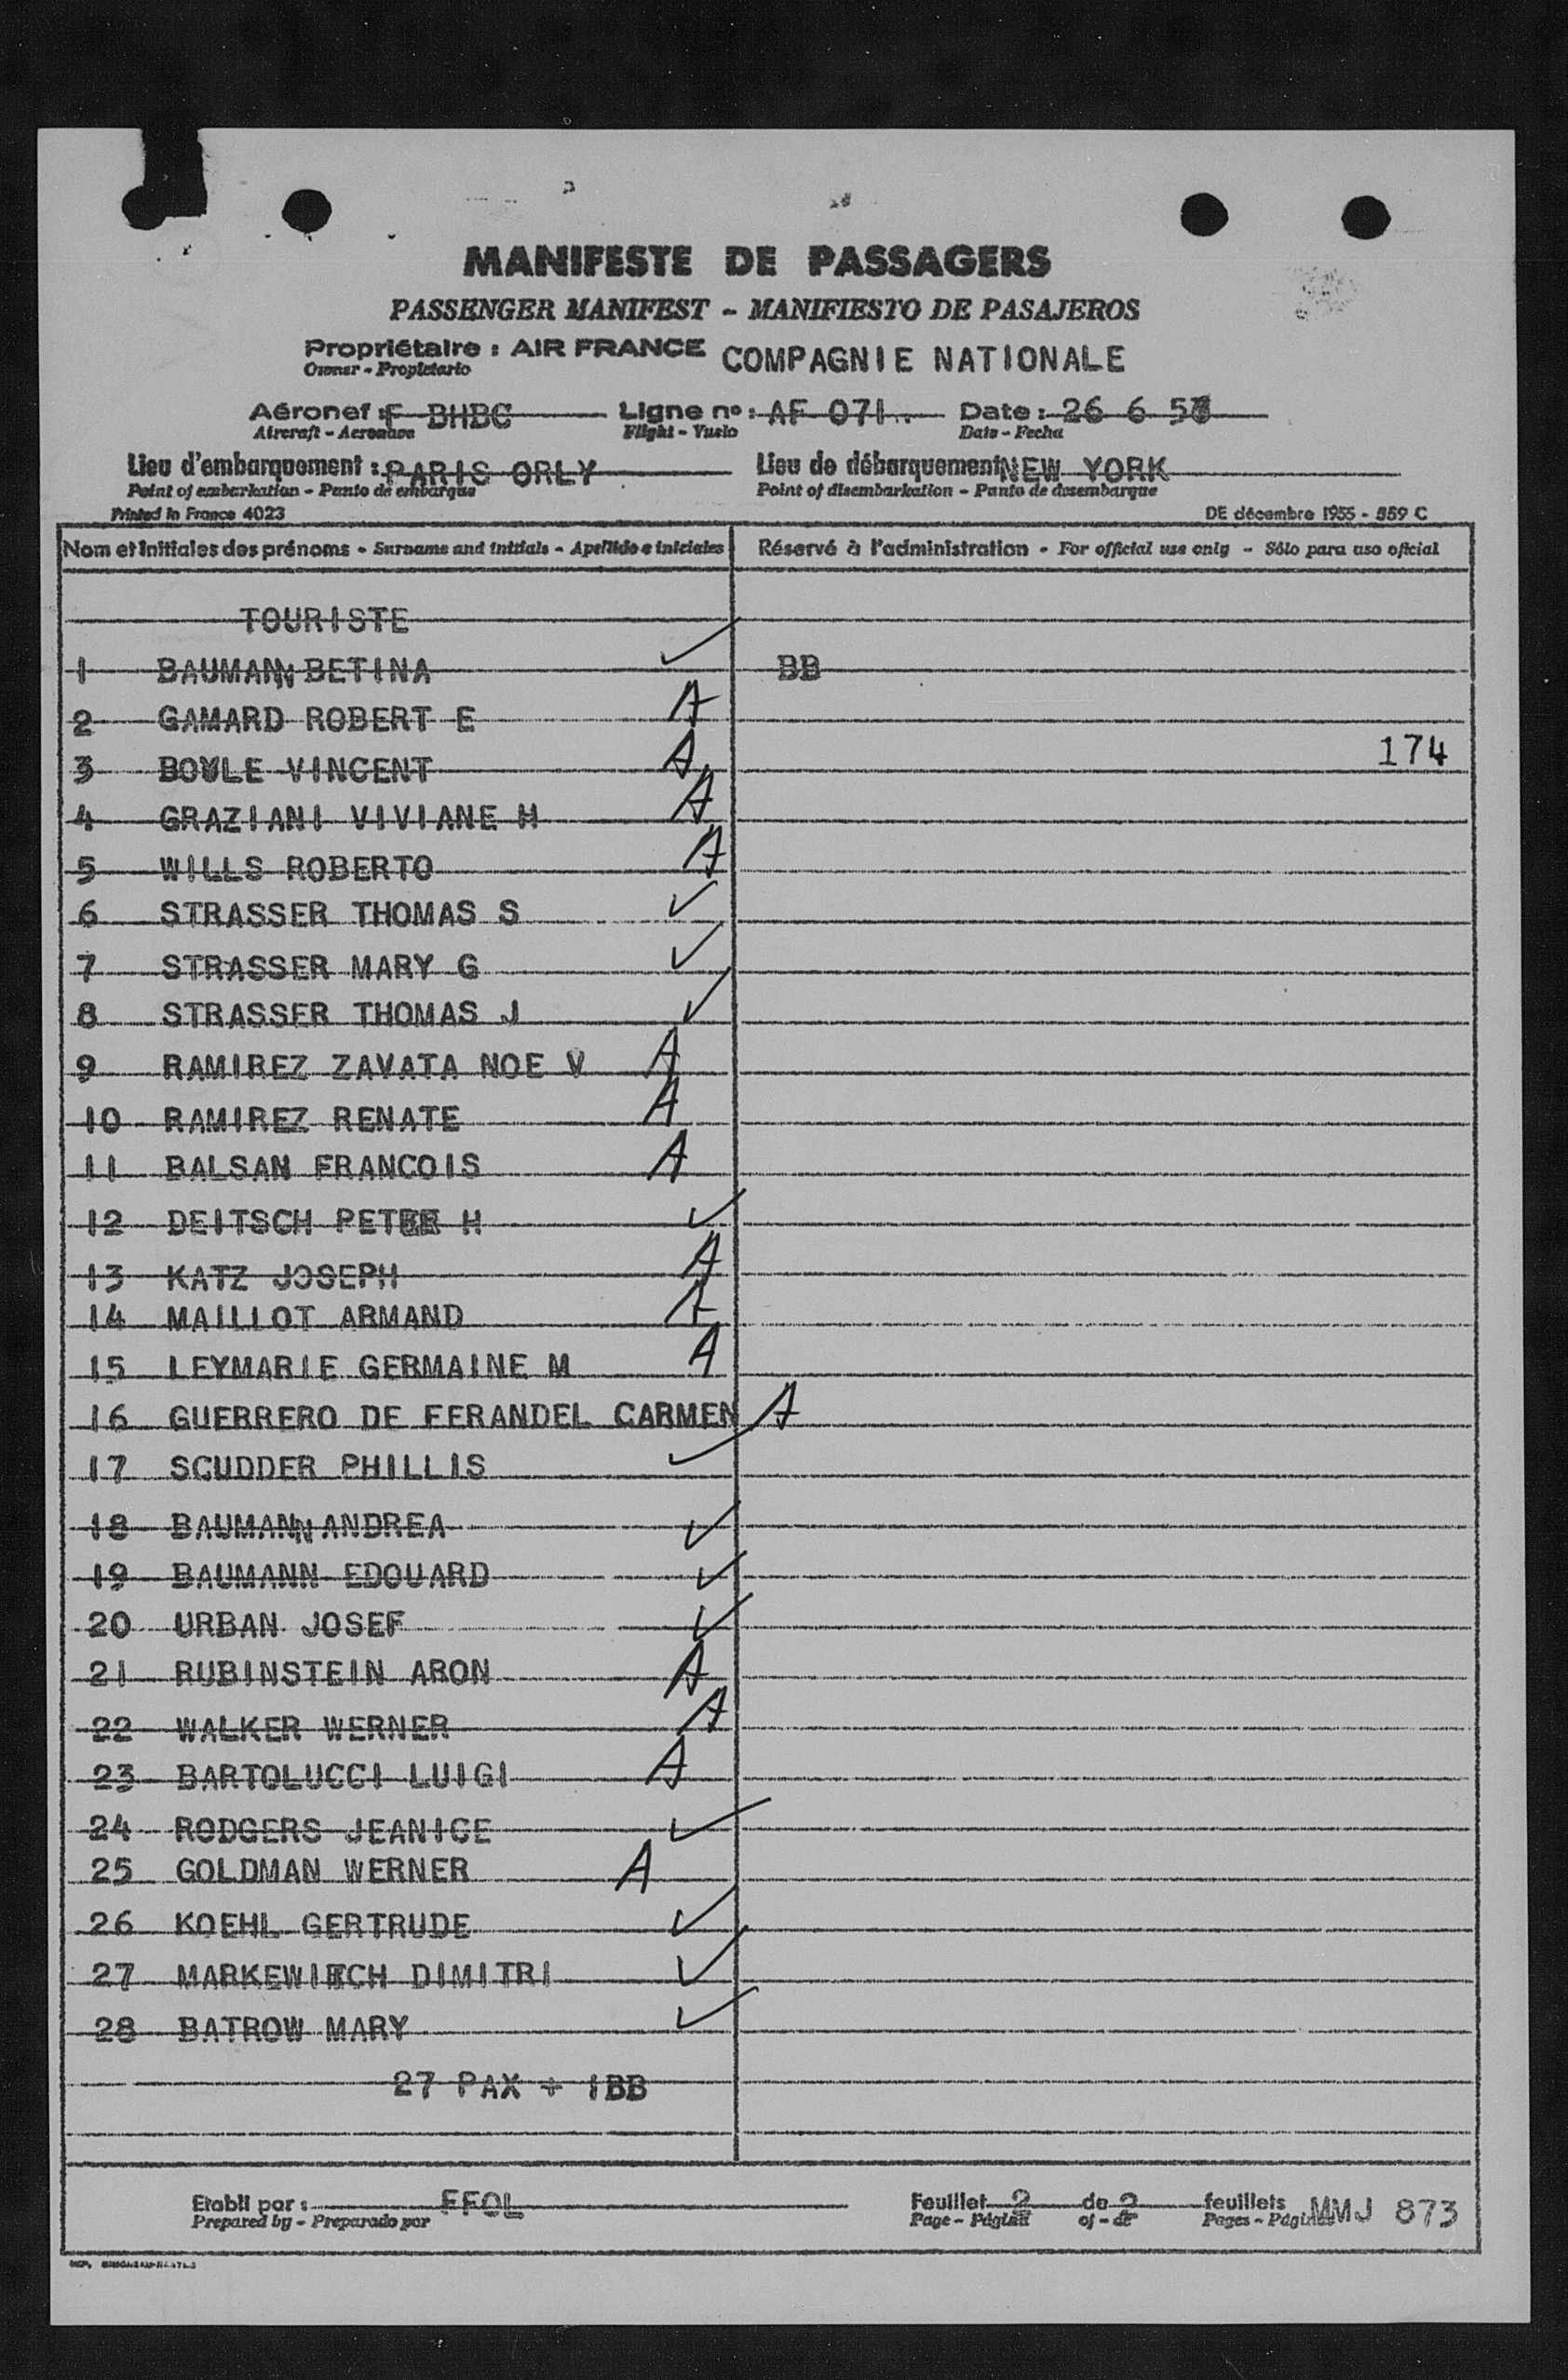 MANIFESTE DE PASSAGERS
PASSENGER MANIFEST - MANIFIESTO DE PASAJEROS
Propriétaire : AIR FRANCE COMPAGNIE NATIONALE
Owner - Propietario
Aéronef : F BHBC Ligne nº : AF 071 Date : 26 6 5
Aircraft - Aeronave Flight - Vuelo Date - Fecha
Lieu d'embarquement : PARIS ORLY Lieu de débarquement NEW YORK
Point of embarkation - Punto de embarque Point of disembarkation - Punto de desembarque
Printed in France 4023 DE décembre 1955 - 559 C
Nom et Initiales des prénoms - Surname and initials - Apellido e iniciales Réservé à l'administration - For official use only - Sólo para uso oficial
TOURISTE
1 BAUMANN BETINA ✓ BB
2 GAMARD ROBERT E A
3 BOYLE VINCENT A 174
4 GRAZIANI VIVIANE H A
5 WILLS ROBERTO A
6 STRASSER THOMAS S ✓
7 STRASSER MARY G ✓
8 STRASSER THOMAS J ✓
9 RAMIREZ ZAVATA NOE V A
10 RAMIREZ RENATE A
11 BALSAN FRANCOIS A
12 DEITSCH PETER H ✓
13 KATZ JOSEPH A
14 MAILLOT ARMAND A
15 LEYMARIE GERMAINE M A
16 GUERRERO DE FERANDEL CARMEN A
17 SCUDDER PHILLIS ✓
18 BAUMANN ANDREA ✓
19 BAUMANN EDOUARD ✓
20 URBAN JOSEF ✓
21 RUBINSTEIN ARON A
22 WALKER WERNER A
23 BARTOLUCCI LUIGI A
24 RODGERS JEANICE ✓
25 GOLDMAN WERNER A
26 KOEHL GERTRUDE ✓
27 MARKEWITCH DIMITRI ✓
28 BATROW MARY ✓
27 PAX + 1BB
Etabli par : FFOL Feuillet 2 de 2 feuillets MMJ 873
Prepared by - Preparado por Page - Página of - de Pages - Páginas